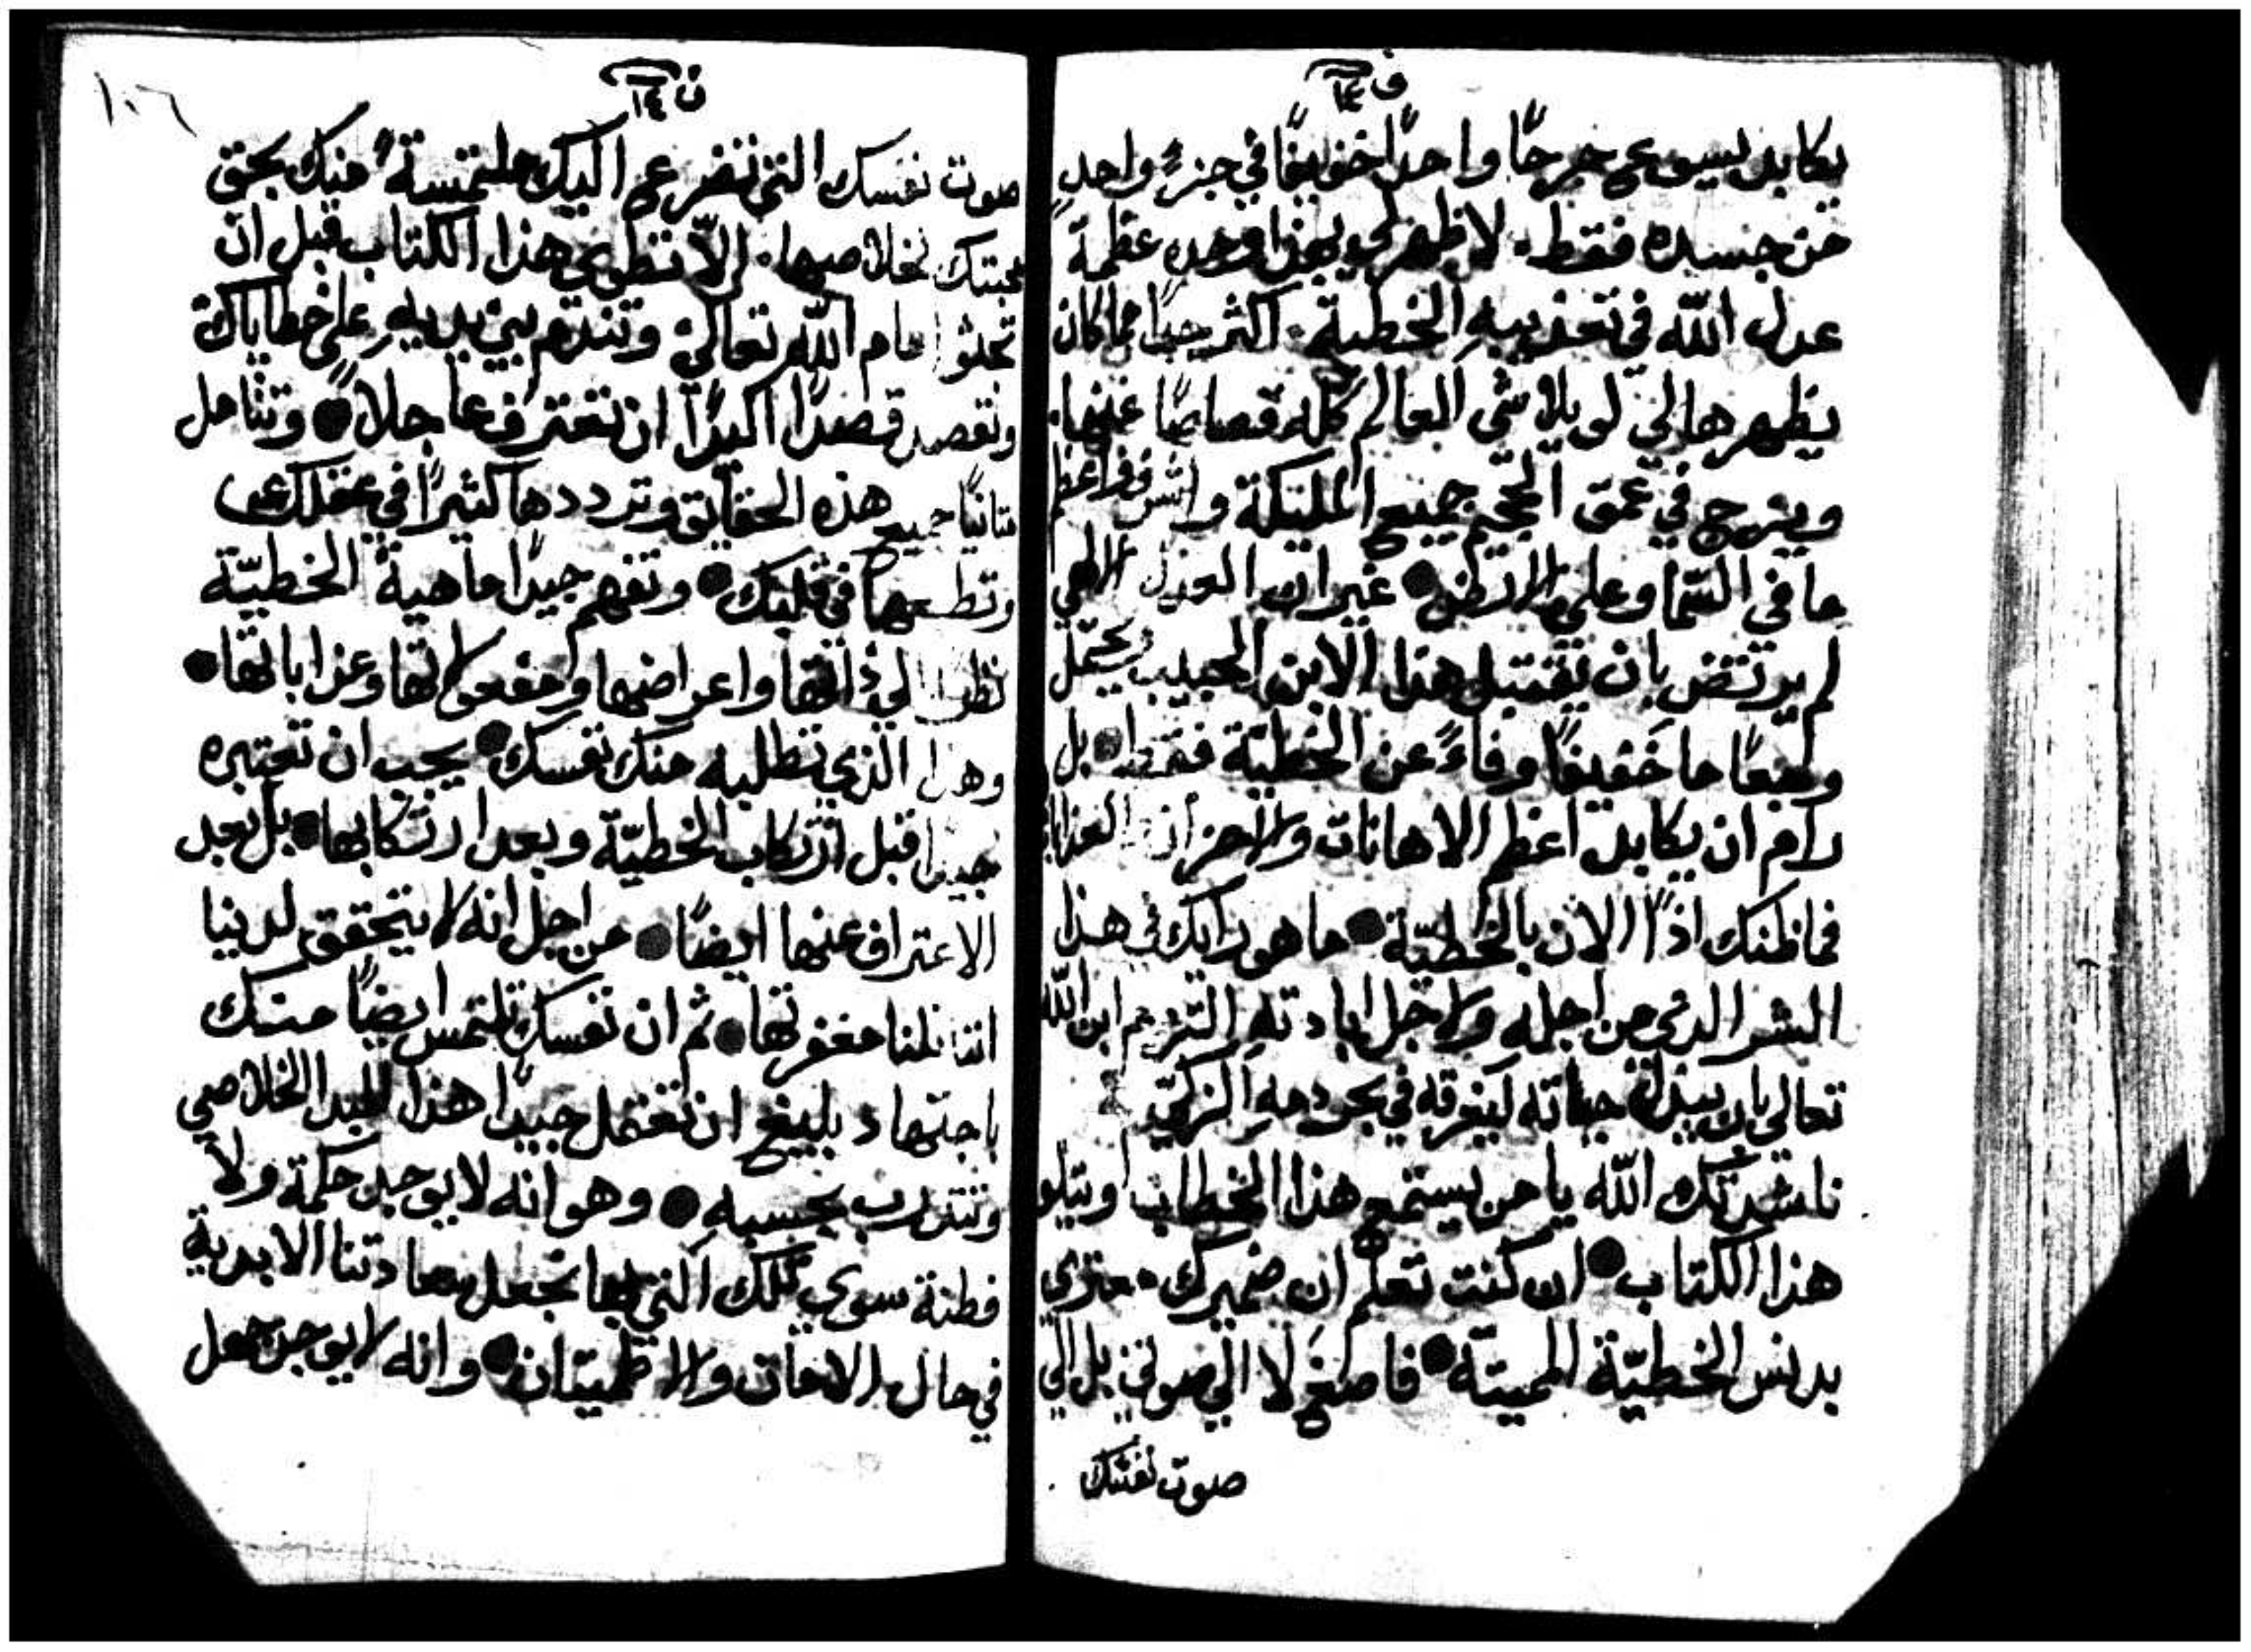 ف ١٤
يكابد يسوع جرحًا واحدًا خفيفًا في جزءٍ واحدٍ
من جسده فقط. لاظهر لي بهذا وحده عظمة
عدل الله في تعذيبهِ الخطية. اكثر جدًا مما كان
يظهرها لي لو يلاشي العالم كله قصاصًا عنها.
ويزج في عمق الجحيم جميع المليكة واشرف واعظم
ما في السما وعلى الارض ● غير ان العدل الالهي
لم يرتضِ بان يقتبل هذا الابن الحبيب يحتمل
وجعًا ما خفيفًا وفاءً عن الخطيّة فقط ● بل
رام ان يكابد اعظم الاهانات والاحزان العذابات
فماظنك اذًا الان بالخطيّة ● ما هو رايك في هذا
الشر الذي من اجله ولاجل ابادتهِ التزم ابن الله
تعالي بان يبذل حياته ليغرقه في بحر دمهِ الزكيّ
ناشدتك الله يا من يستمع هذا الخطاب اويتلو
هذا الكتاب ● ان كنت تعلم ان ضميرك معتري
بدنس الخطيّة المميتة ● فاصغِ لا الي صوتي بل الي
صوت نفسك
ف ١٤
١٠٦
صوت نفسك التي تضرع اليك ملتمسةً منك بحق
محبتك لخلاصها. الّا تطوي هذا الكتاب قبل ان
تجثوا امام الله تعالى وتندم بين يديهِ على خطاياك
وتقصد قصدًا اكيدًا ان تعترف عاجلاً ● وتتامل
متانيًا جميع هذه الحقايق وترددها كثيرًا في عقلك
وتطبعها في قلبك ● وتفهم جيدًا ماهية الخطيّة
نظرًا الي ذاتها واعراضها ومفعولاتها وعذاباتها ●
وهذا الذي تطلبه منك نفسك ● يجب ان تعتبره
جيدًا قبل ارتكاب الخطيّة وبعد ارتكابها ● بل بعد
الاعتراف عنها ايضًا ● من اجل انه لا يتحقق لدينا
اننا نلنا مغفرتها ● ثم ان نفسك تلتمس ايضًا منك
باجتهاد بليغ ان تعتمل جيدًا هذا المبدا الخلاصي
وتتدرب بحسبهِ ● وهو انه لا يوجد حكمة ولا
فطنة سوى تلك التي بها تجعل سعادتنا الابدية
في حال الامان والاطميتان ● وانه لا يوجد جهل